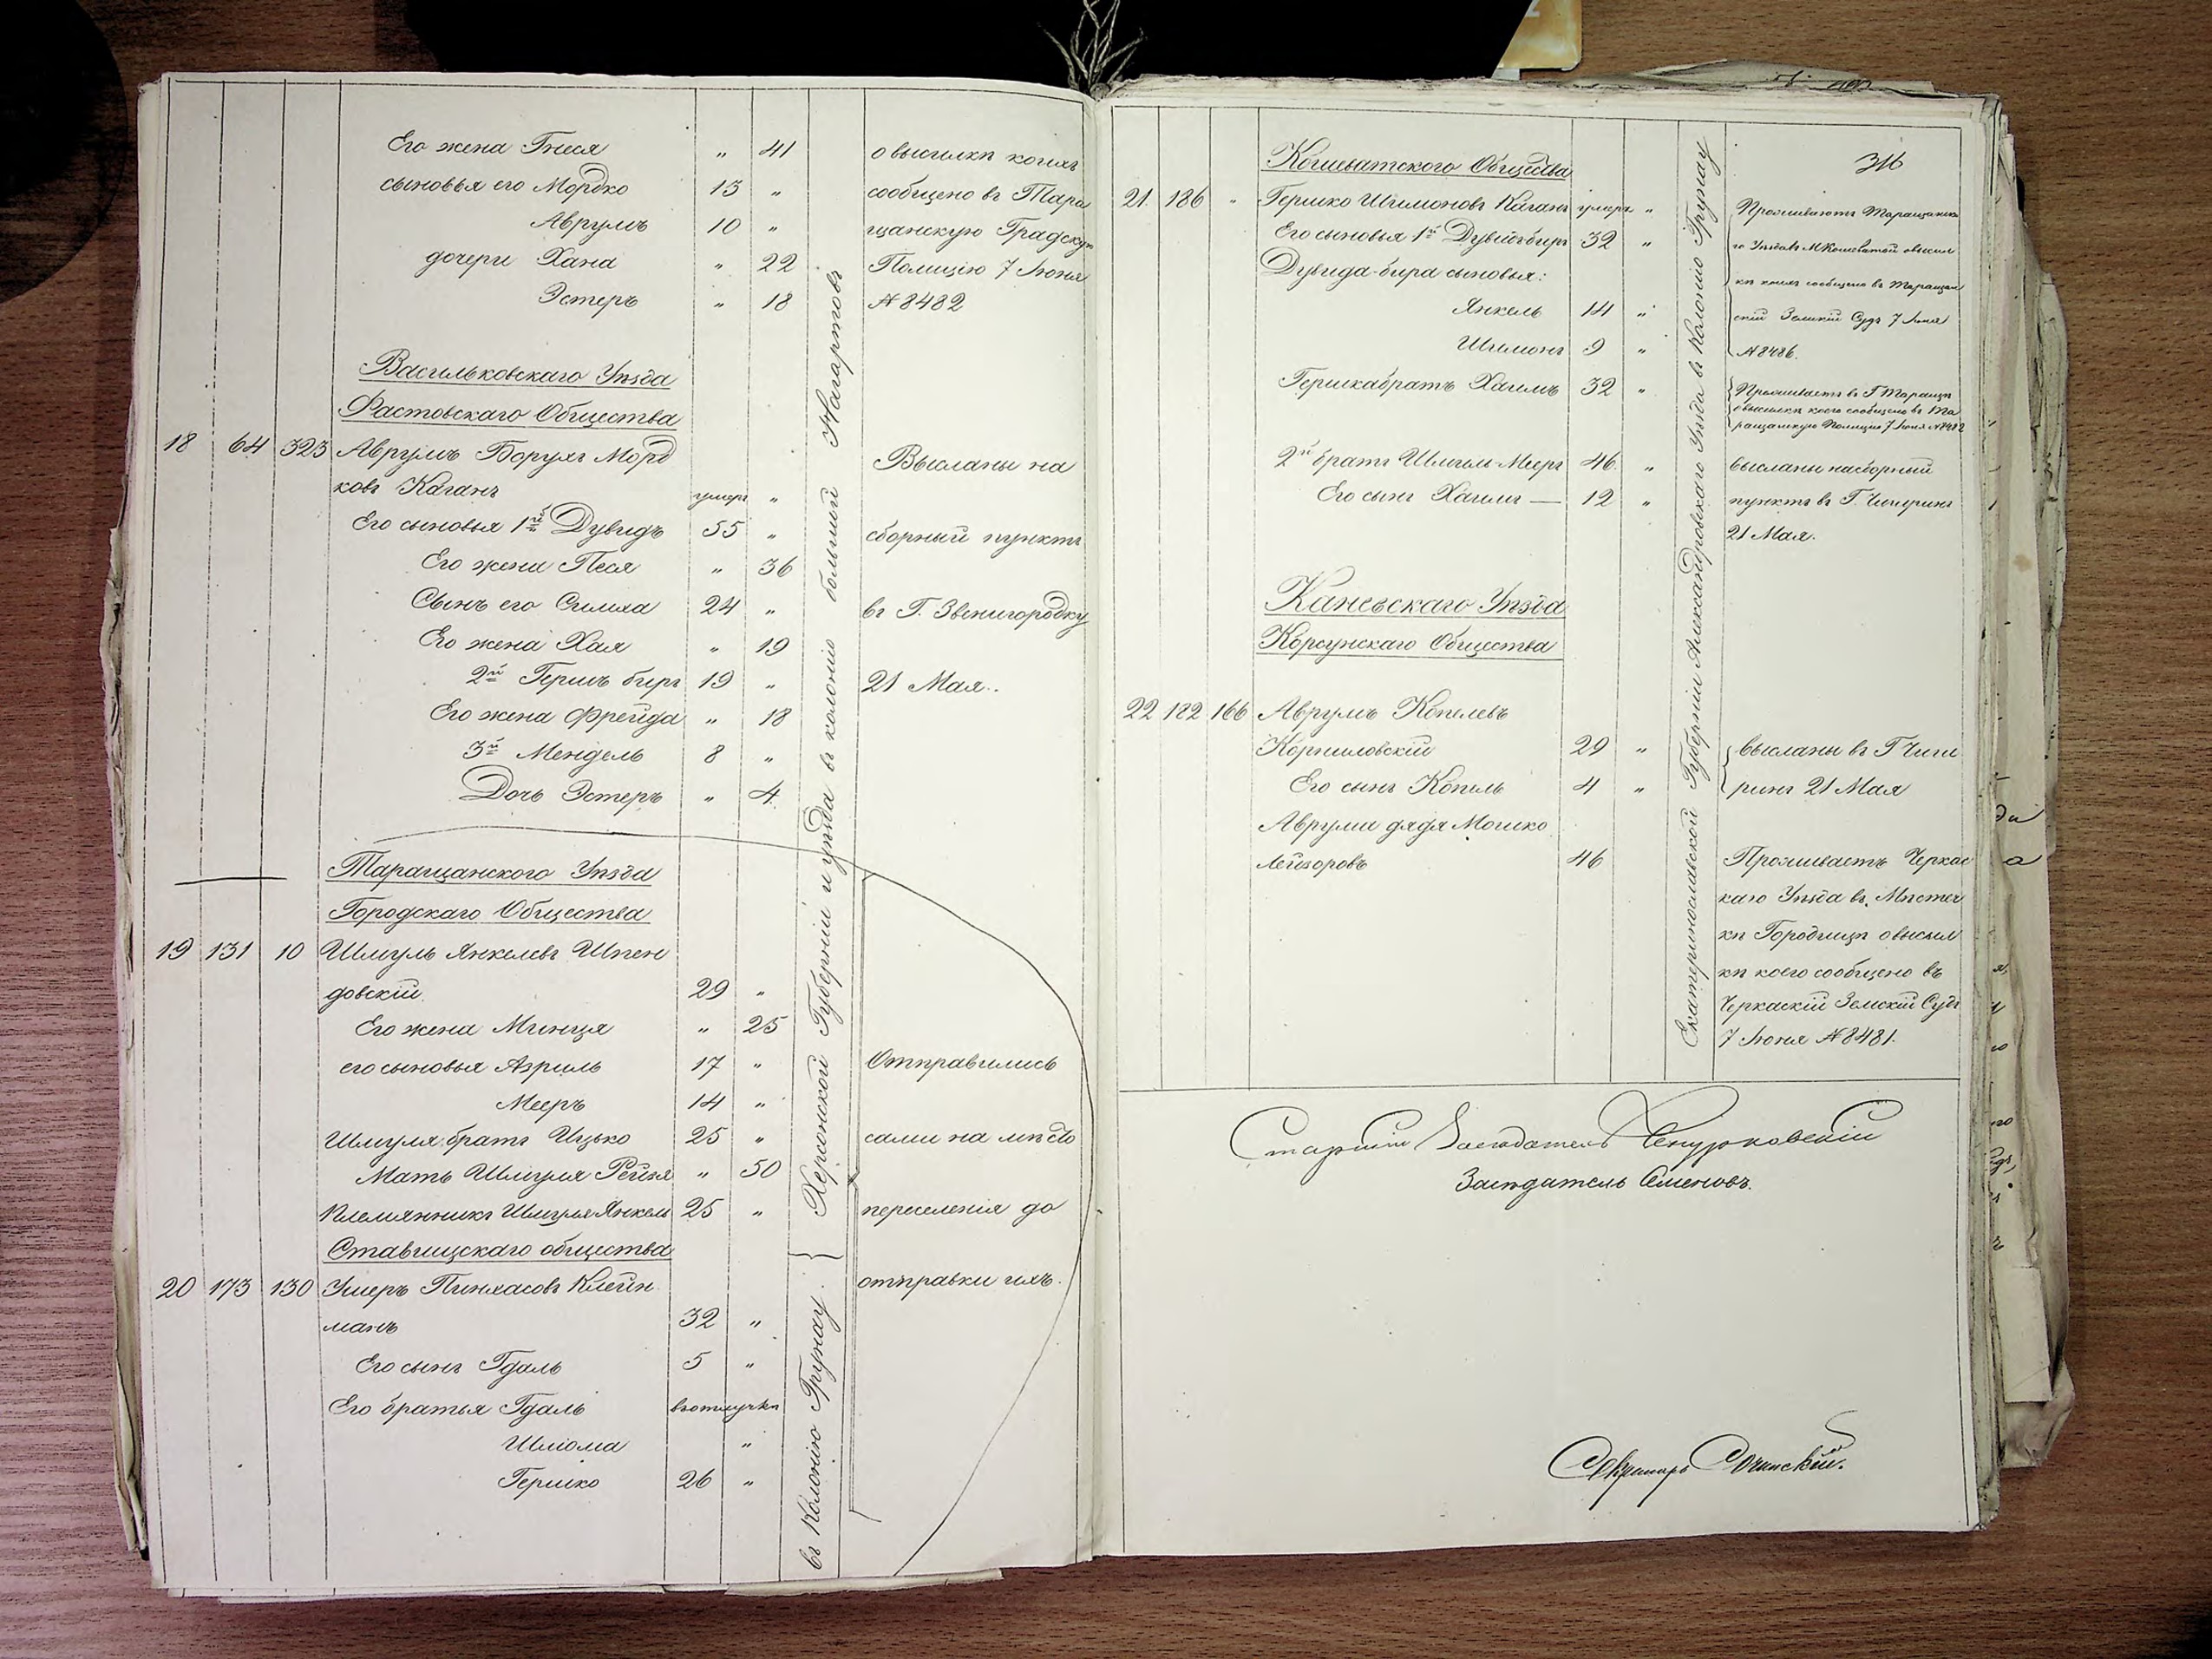 Его жена Гнеся " 41 о высылкѣ коихъ
сыновья его Мордко 13 " сообщено въ Тара
Аврумъ 10 " щанскую Градскую
дочери Хана " 22 Полицію 7 Іюня
Эстеръ " 18 № 8482
Васильковскаго Уѣзда
Фастовскаго Общества
18 64 323 Аврумъ Борухъ Морд Высланы на
ковъ Каганъ умеръ "
Его сыновья 1й Дувидъ 55 " сборный пунктъ
Его жена Песя " 36
Сынъ его Симха 24 " въ Г. Звенигородку
Его жена Хая " 19
2й Гершъ беръ 19 " 21 Мая.
Его жена Фрейда " 18
3й Мендель 8 "
Дочь Эстеръ " 4
Таращанского Уѣзда
Городскаго Общества
19 131 10 Шмуль Янкелевъ Шпен
довскій 29 "
Его жена Минця " 25
его сыновья Азриль 17 " Отправились
Мееръ 14 "
Шмуля братъ Ицько 25 " сами на мѣсто
Мать Шмуля Рейзя " 50
Племянникъ Шмуля Янкель 25 " переселенія до
Ставищскаго общества
20 173 130 Умеръ Пинхасовъ Клейн отправки ихъ.
манъ 32 "
Его сынъ Гдаль 5 "
Его братья Гдаль въ отлучкѣ
Шлома "
Гершко 26 "
въ колонію большій Нагартовъ
Херсонской Губерніи и уѣзда
въ Колонію Грунау
316
Кошеватского Общества
21. 186 " Гершко Шимоновъ Каганъ умеръ " Проживаютъ Таращанска
Его сыновья 1й Дувидъ беръ 32 " го Уѣзда въ М Кошеватой о высыл
Дувида-бера сыновья: кѣ коихъ сообщено въ Таращан
Янкель 14 " скій Земскій Судъ 7 Іюня
Шимонъ 9 " № 8486.
Гершка братъ Хаимъ 32 " Проживаетъ въ Г Таращѣ
о высылкѣ коего сообщено въ Та
ращанскую Полицію 7 Іюня № 8482
2й братъ Шмуль Мееръ 46 " высланы на сборный
Его сынъ Хаимъ — 12 " пунктъ въ Г. Чигиринъ
21 Мая.
Каневскаго Уѣзда
Корсунскаго Общества
22 182 166 Аврумъ Копелевъ
Корниловскій 29 " высланы въ Г Чиги
Его сынъ Копель 4 " ринъ 21 Мая
Аврума дядя Мошко
Лейзоровъ 46 Проживаетъ Черкас
каго Уѣзда въ Мѣстеч
кѣ Городищѣ о высыл
кѣ коего сообщено въ
Черкаскій Земскій Судъ
7 Іюня № 8481.
Екатеринославской Губерніи Александровскаго Уѣзда въ Колонію Грунау
Старшій Засѣдатель
Засѣдатель Семеновъ.
Секретарь